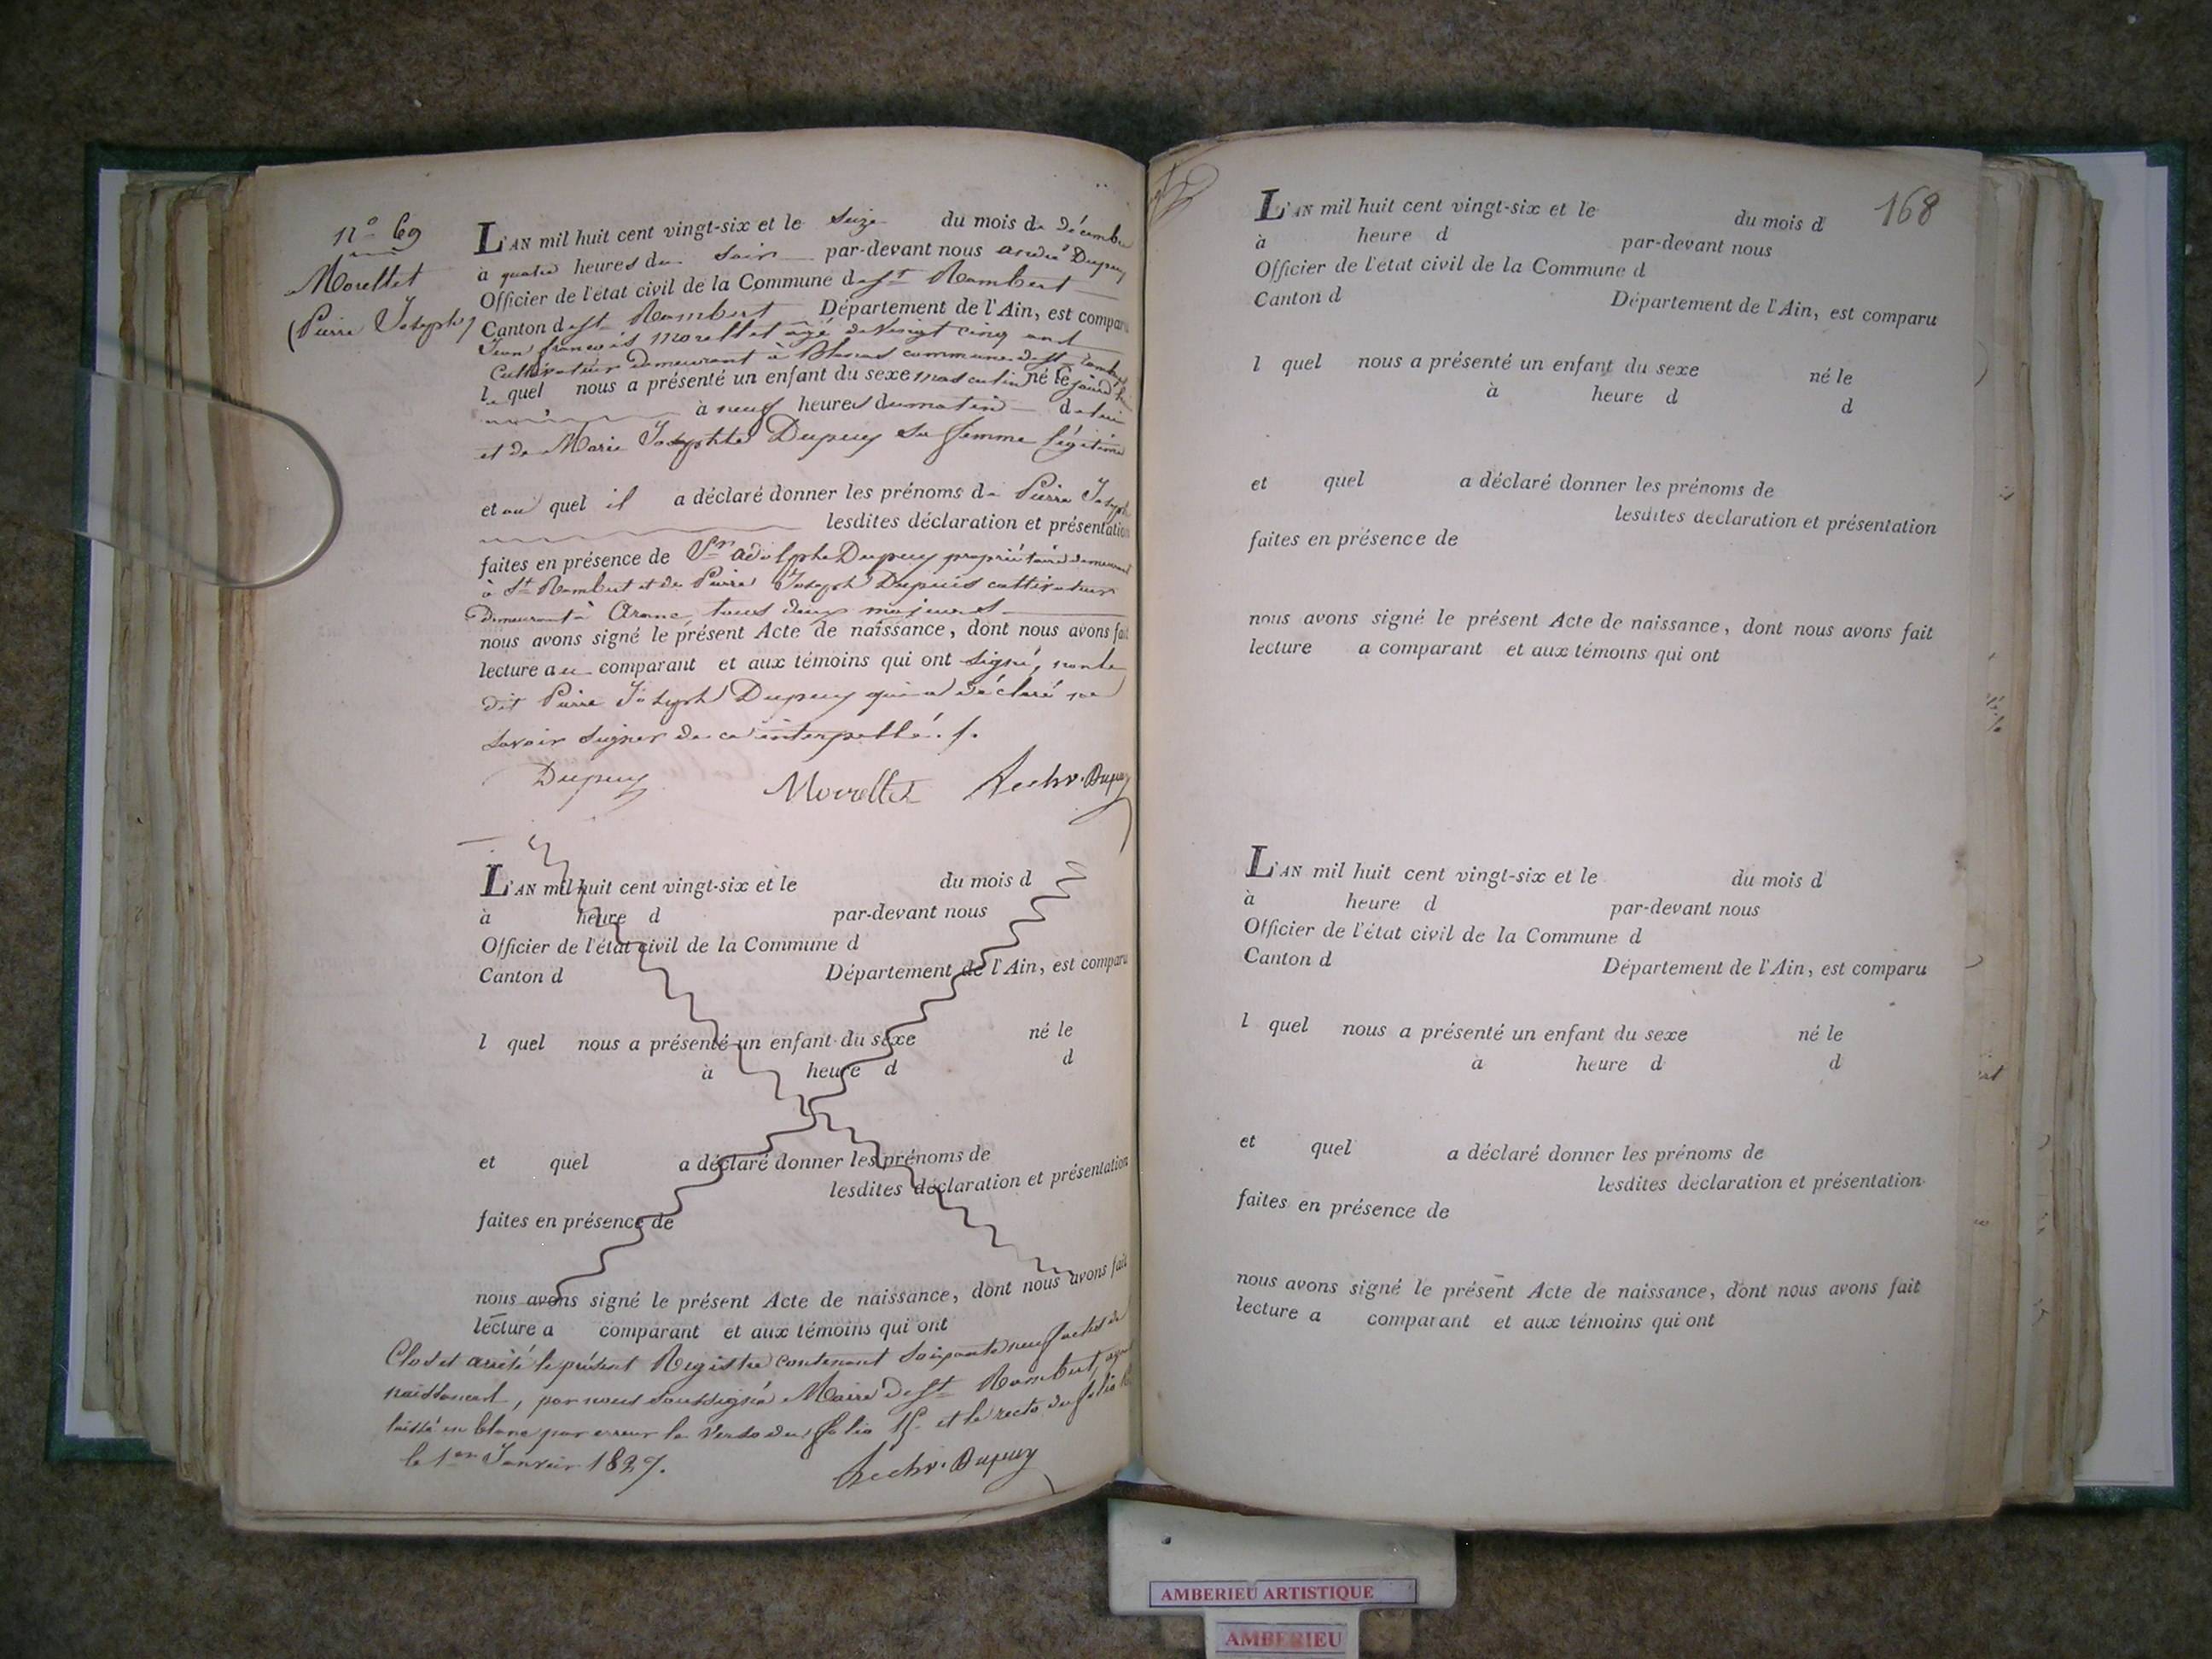 n° 69
Morellet
(Pierre Joseph)
L'AN mil huit cent vingt-six et le seize du mois de décembre
à quatre heures du soir par-devant nous andré Dupuy
Officier de l'état civil de la Commune de St Rambert
Canton de St Rambert Département de l'Ain, est comparu
Jean françois morellet âgé de vingt cinq ans
Cultivateur demeurant à commune de St Rambert
lequel nous a présenté un enfant du sexe masculin né ce jourd'hui
à neuf heures du matin de lui
et de Marie Josephte Dupuy sa femme légitime
et au quel il a déclaré donner les prénoms de Pierre Joseph
lesdites déclaration et présentation
faites en présence de Sr adolphe Dupuy propriétaire demeurant
à St Rambert et de Pierre Joseph Dupuis cultivateur
Demeurant à Aranc, tous deux majeurs
nous avons signé le présent Acte de naissance, dont nous avons fait
lecture au comparant et aux témoins qui ont signé, non le
dit Pierre Joseph Dupuy qui a déclaré ne
savoir signer de ce interpellé ./.
Dupuy Morellet Dupuy
L'AN mil huit cent vingt-six et le du mois d
à heure d par-devant nous
Officier de l'état civil de la Commune d
Canton d Département de l'Ain, est comparu
l quel nous a présenté un enfant du sexe né le
à heure d d
et quel a déclaré donner les prénoms de
lesdites déclaration et présentation
faites en présence de
nous avons signé le présent Acte de naissance, dont nous avons fait
lecture a comparant et aux témoins qui ont
Clos et arrêté le présent Registre contenant soixante neuf actes de
naissances, par nous soussigné Maire de St Rambert, ayant
laissé en blanc par erreur le verso du folio 15 et le recto du folio
le 1er Janvier 1827.
Dupuy
168
L'AN mil huit cent vingt-six et le du mois d
à heure d par-devant nous
Officier de l'état civil de la Commune d
Canton d Département de l'Ain, est comparu
l quel nous a présenté un enfant du sexe né le
à heure d d
et quel a déclaré donner les prénoms de
lesdites déclaration et présentation
faites en présence de
nous avons signé le présent Acte de naissance, dont nous avons fait
lecture a comparant et aux témoins qui ont
L'AN mil huit cent vingt-six et le du mois d
à heure d par-devant nous
Officier de l'état civil de la Commune d
Canton d Département de l'Ain, est comparu
l quel nous a présenté un enfant du sexe né le
à heure d d
et quel a déclaré donner les prénoms de
lesdites déclaration et présentation
faites en présence de
nous avons signé le présent Acte de naissance, dont nous avons fait
lecture a comparant et aux témoins qui ont
AMBERIEU ARTISTIQUE
AMBERIEU